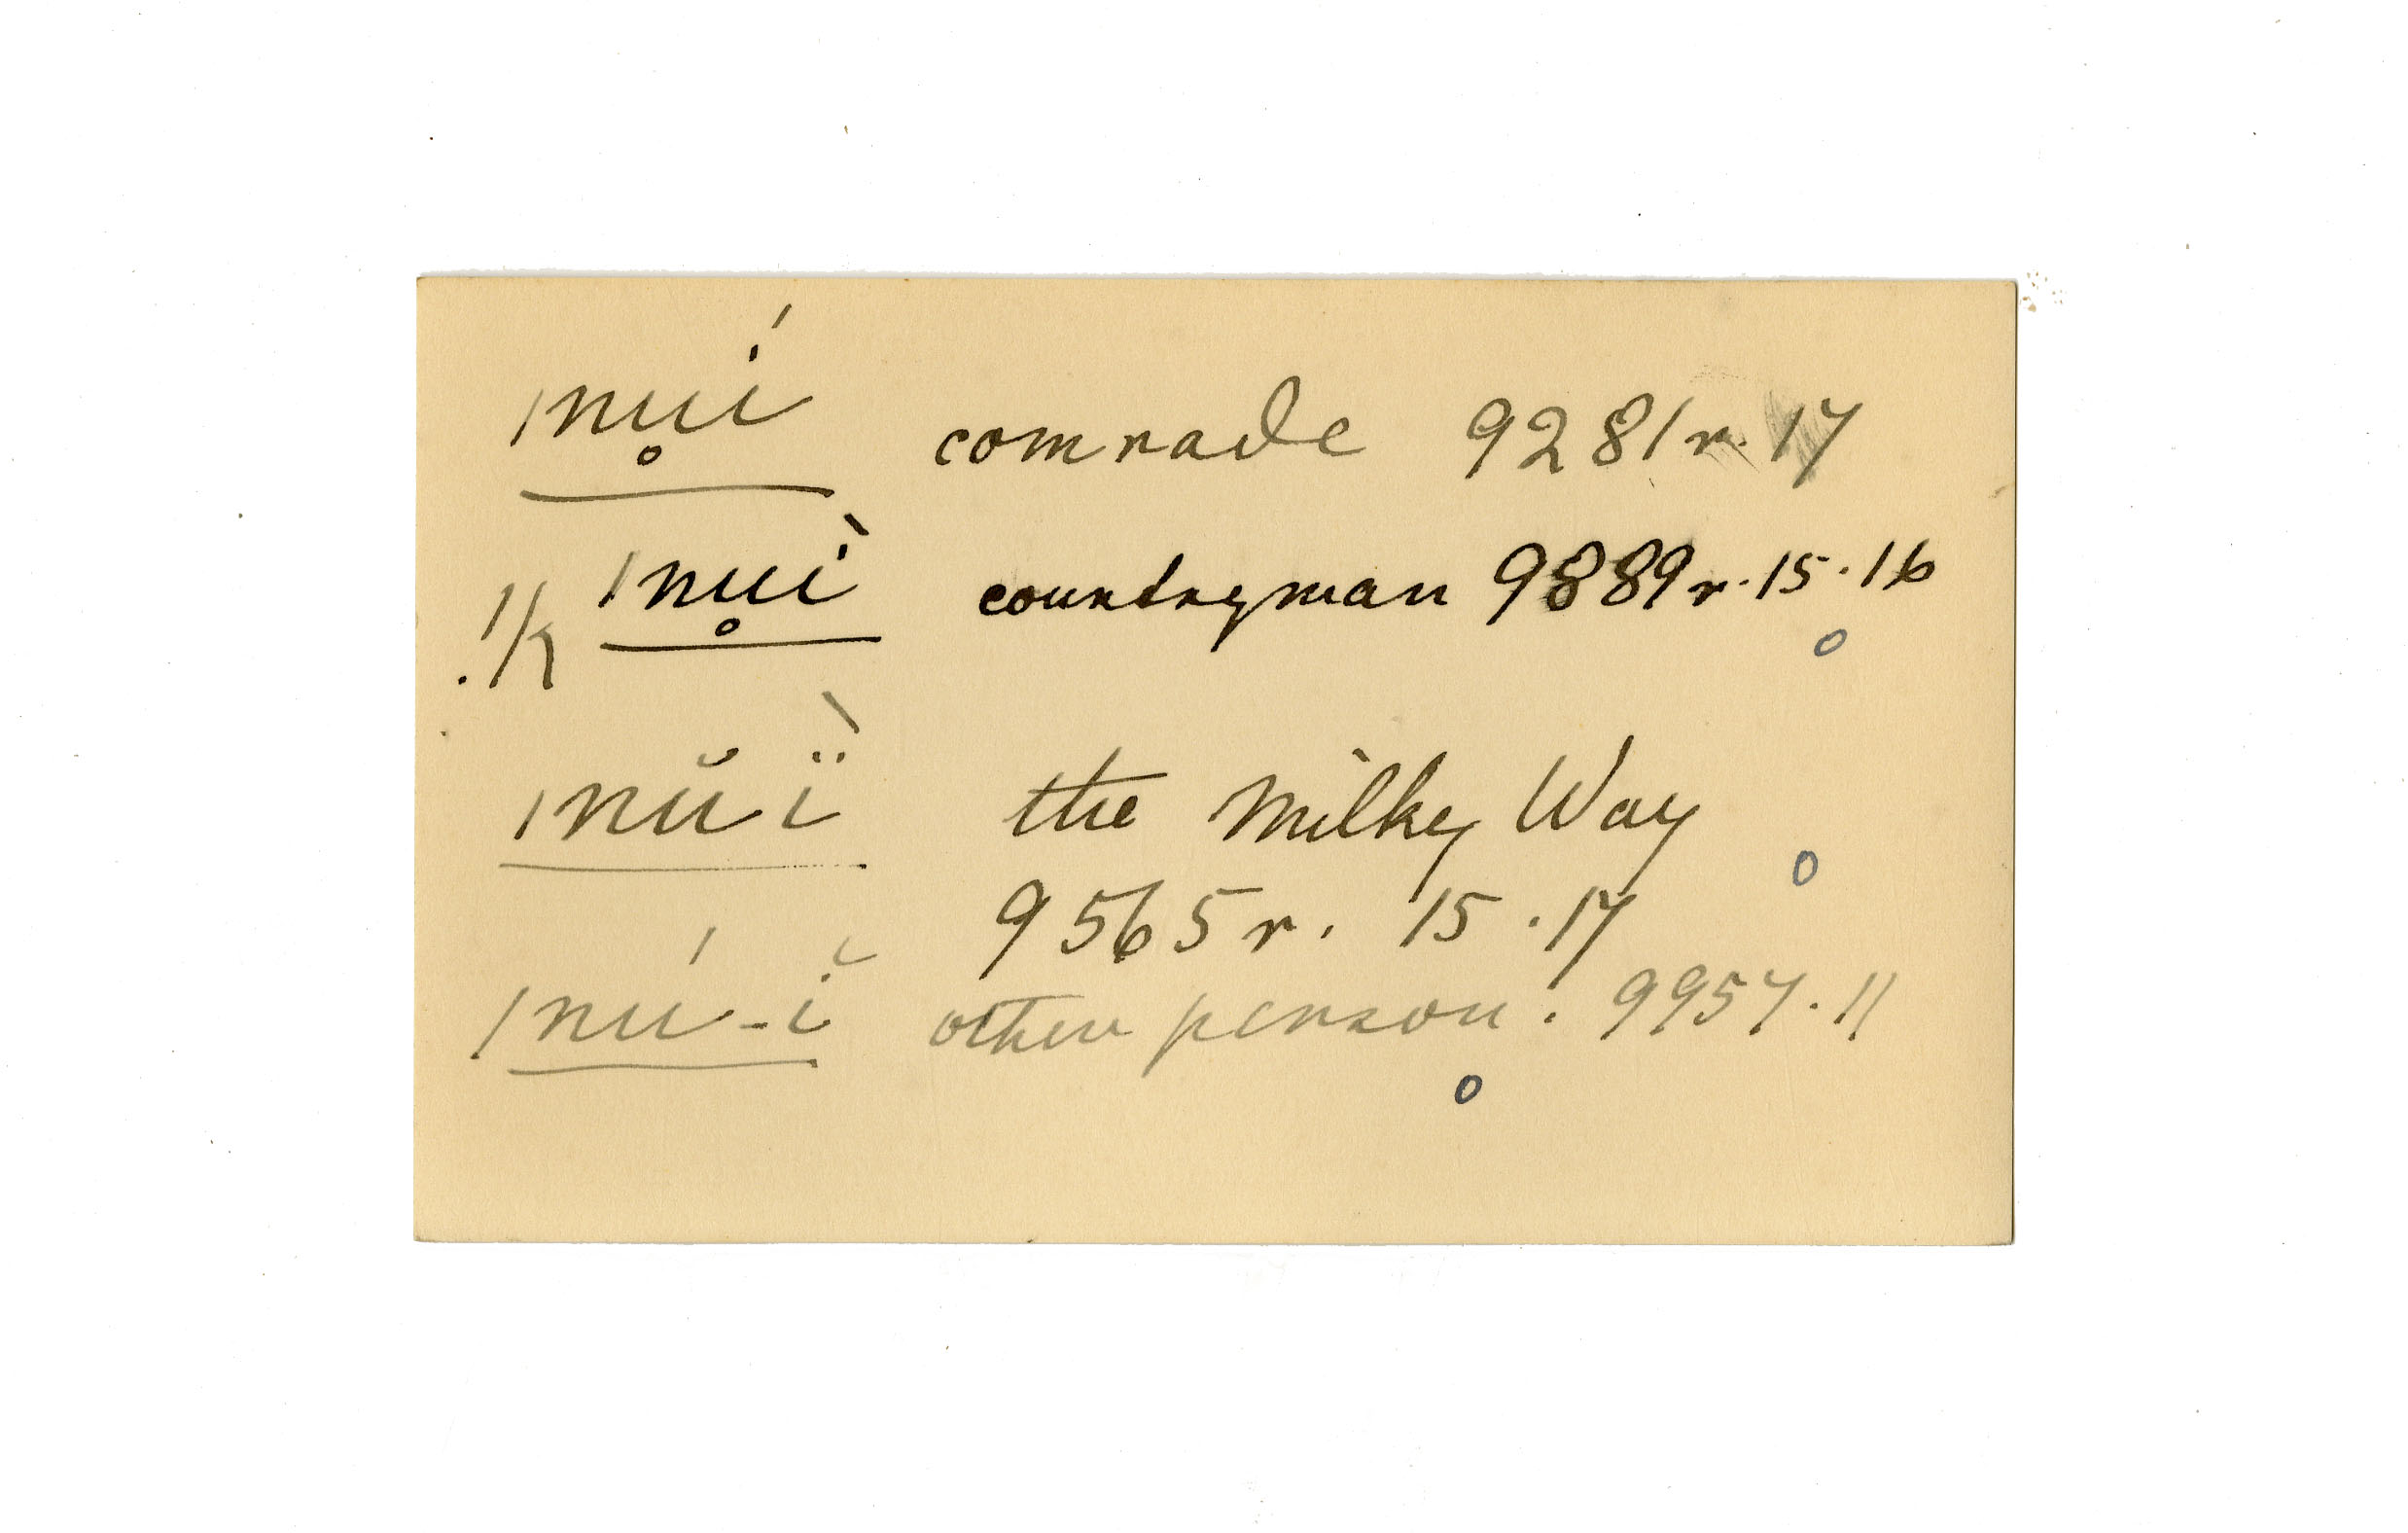 |nu̥í comrade 9281 r. 17
!k |nu̥ì countryman 9889 r. 15. 16
|nŭï̀ the Milky Way
9565 r. 15. 17
|nú-ĭ other person. 9957. 11